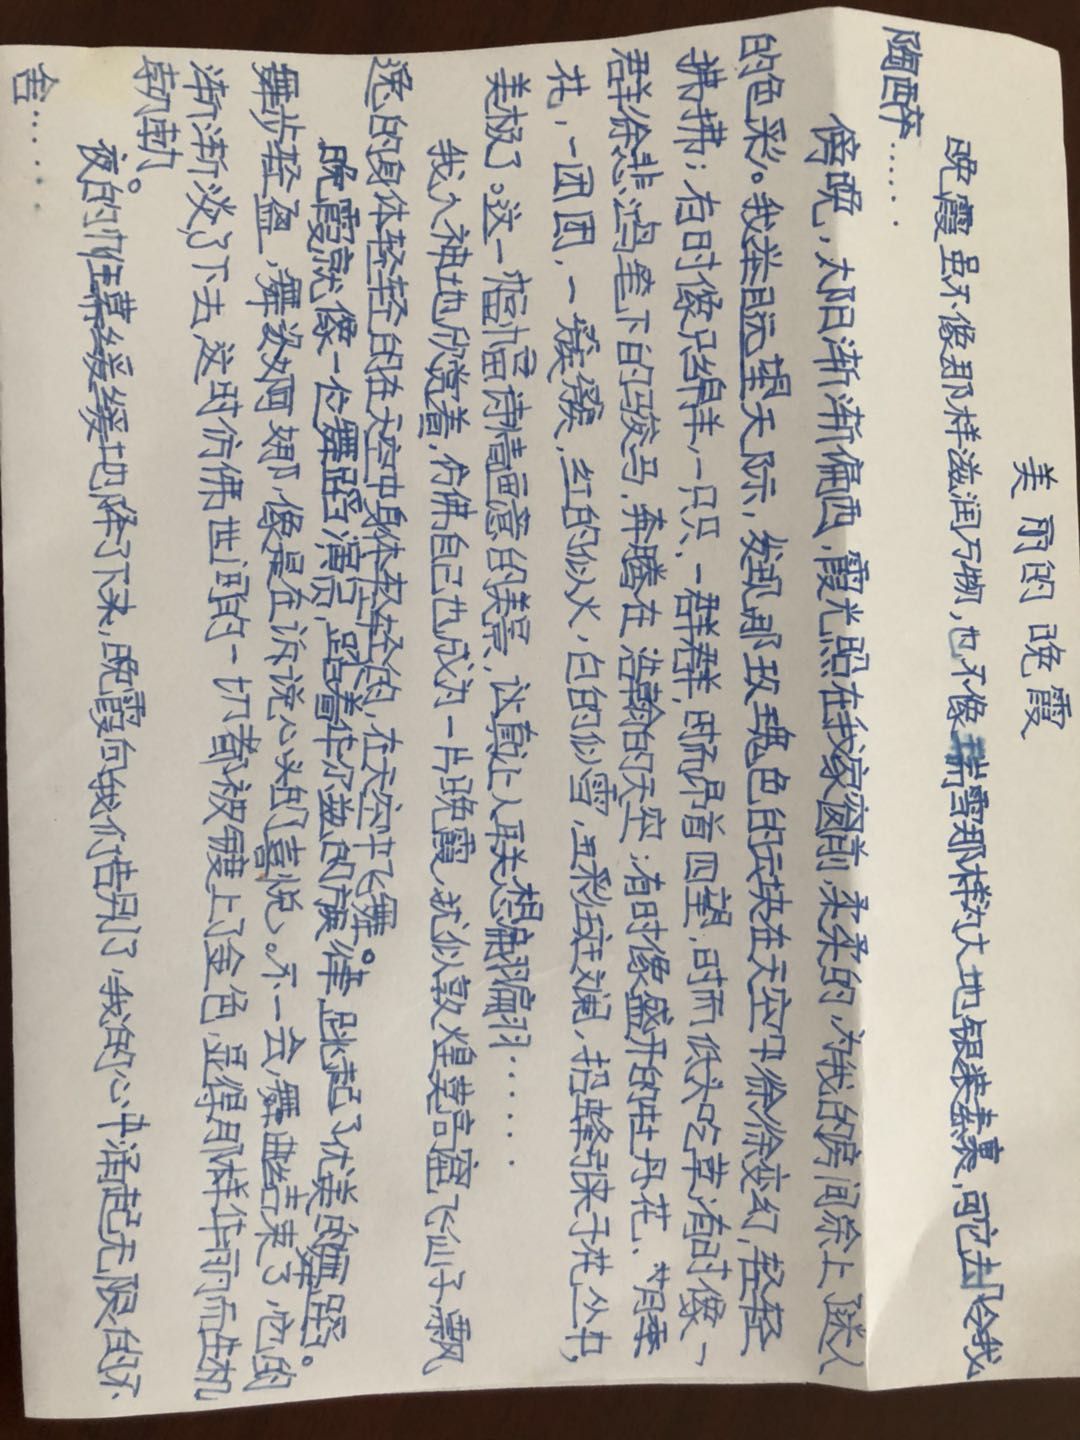 美丽的晚霞
晚霞虽不像那样滋润万物,也不像瑞雪那样为大地银装素裹,可它却令我
陶醉……
傍晚,太阳渐渐偏西,霞光照在我家窗前,柔柔的,为我的房间涂上了迷人
的色彩。我举目远望天际,发现那玫瑰色的云块在天空中徐徐变幻,轻轻
拂拂;有时像只绵羊,一只只,一群群,时而昂首四望,时而低头吃草;有时像一
群徐悲鸿笔下的骏马,奔腾在浩瀚的天空;有时像盛开的牡丹花、月季
花,一团团,一簇簇,红的似火,白的似雪,五彩斑斓,招蜂引来于花丛中,
美极了。这一幅幅诗情画意的美景,认真让人联想翩翩……
我入神地欣赏着,仿佛自己也成为一片晚霞,就似敦煌莫高窟飞仙子,飘
逸的身体轻轻的在天空中身体轻轻的,在天空中飞舞。
晚霞就像一位舞蹈演员,踏着华尔兹的旋律,跳起了优美的舞蹈。
舞步轻盈,舞姿婀娜,像是在诉说心头的喜悦。不一会,舞曲结束了,它的
渐渐淡了下去,这时仿佛世间的一切都被镀上了金色,显得那样华丽而生机
勃勃。
夜的帷幕缓缓地降了下来,晚霞向我们告别了,我的心中涌起无限的不
舍……